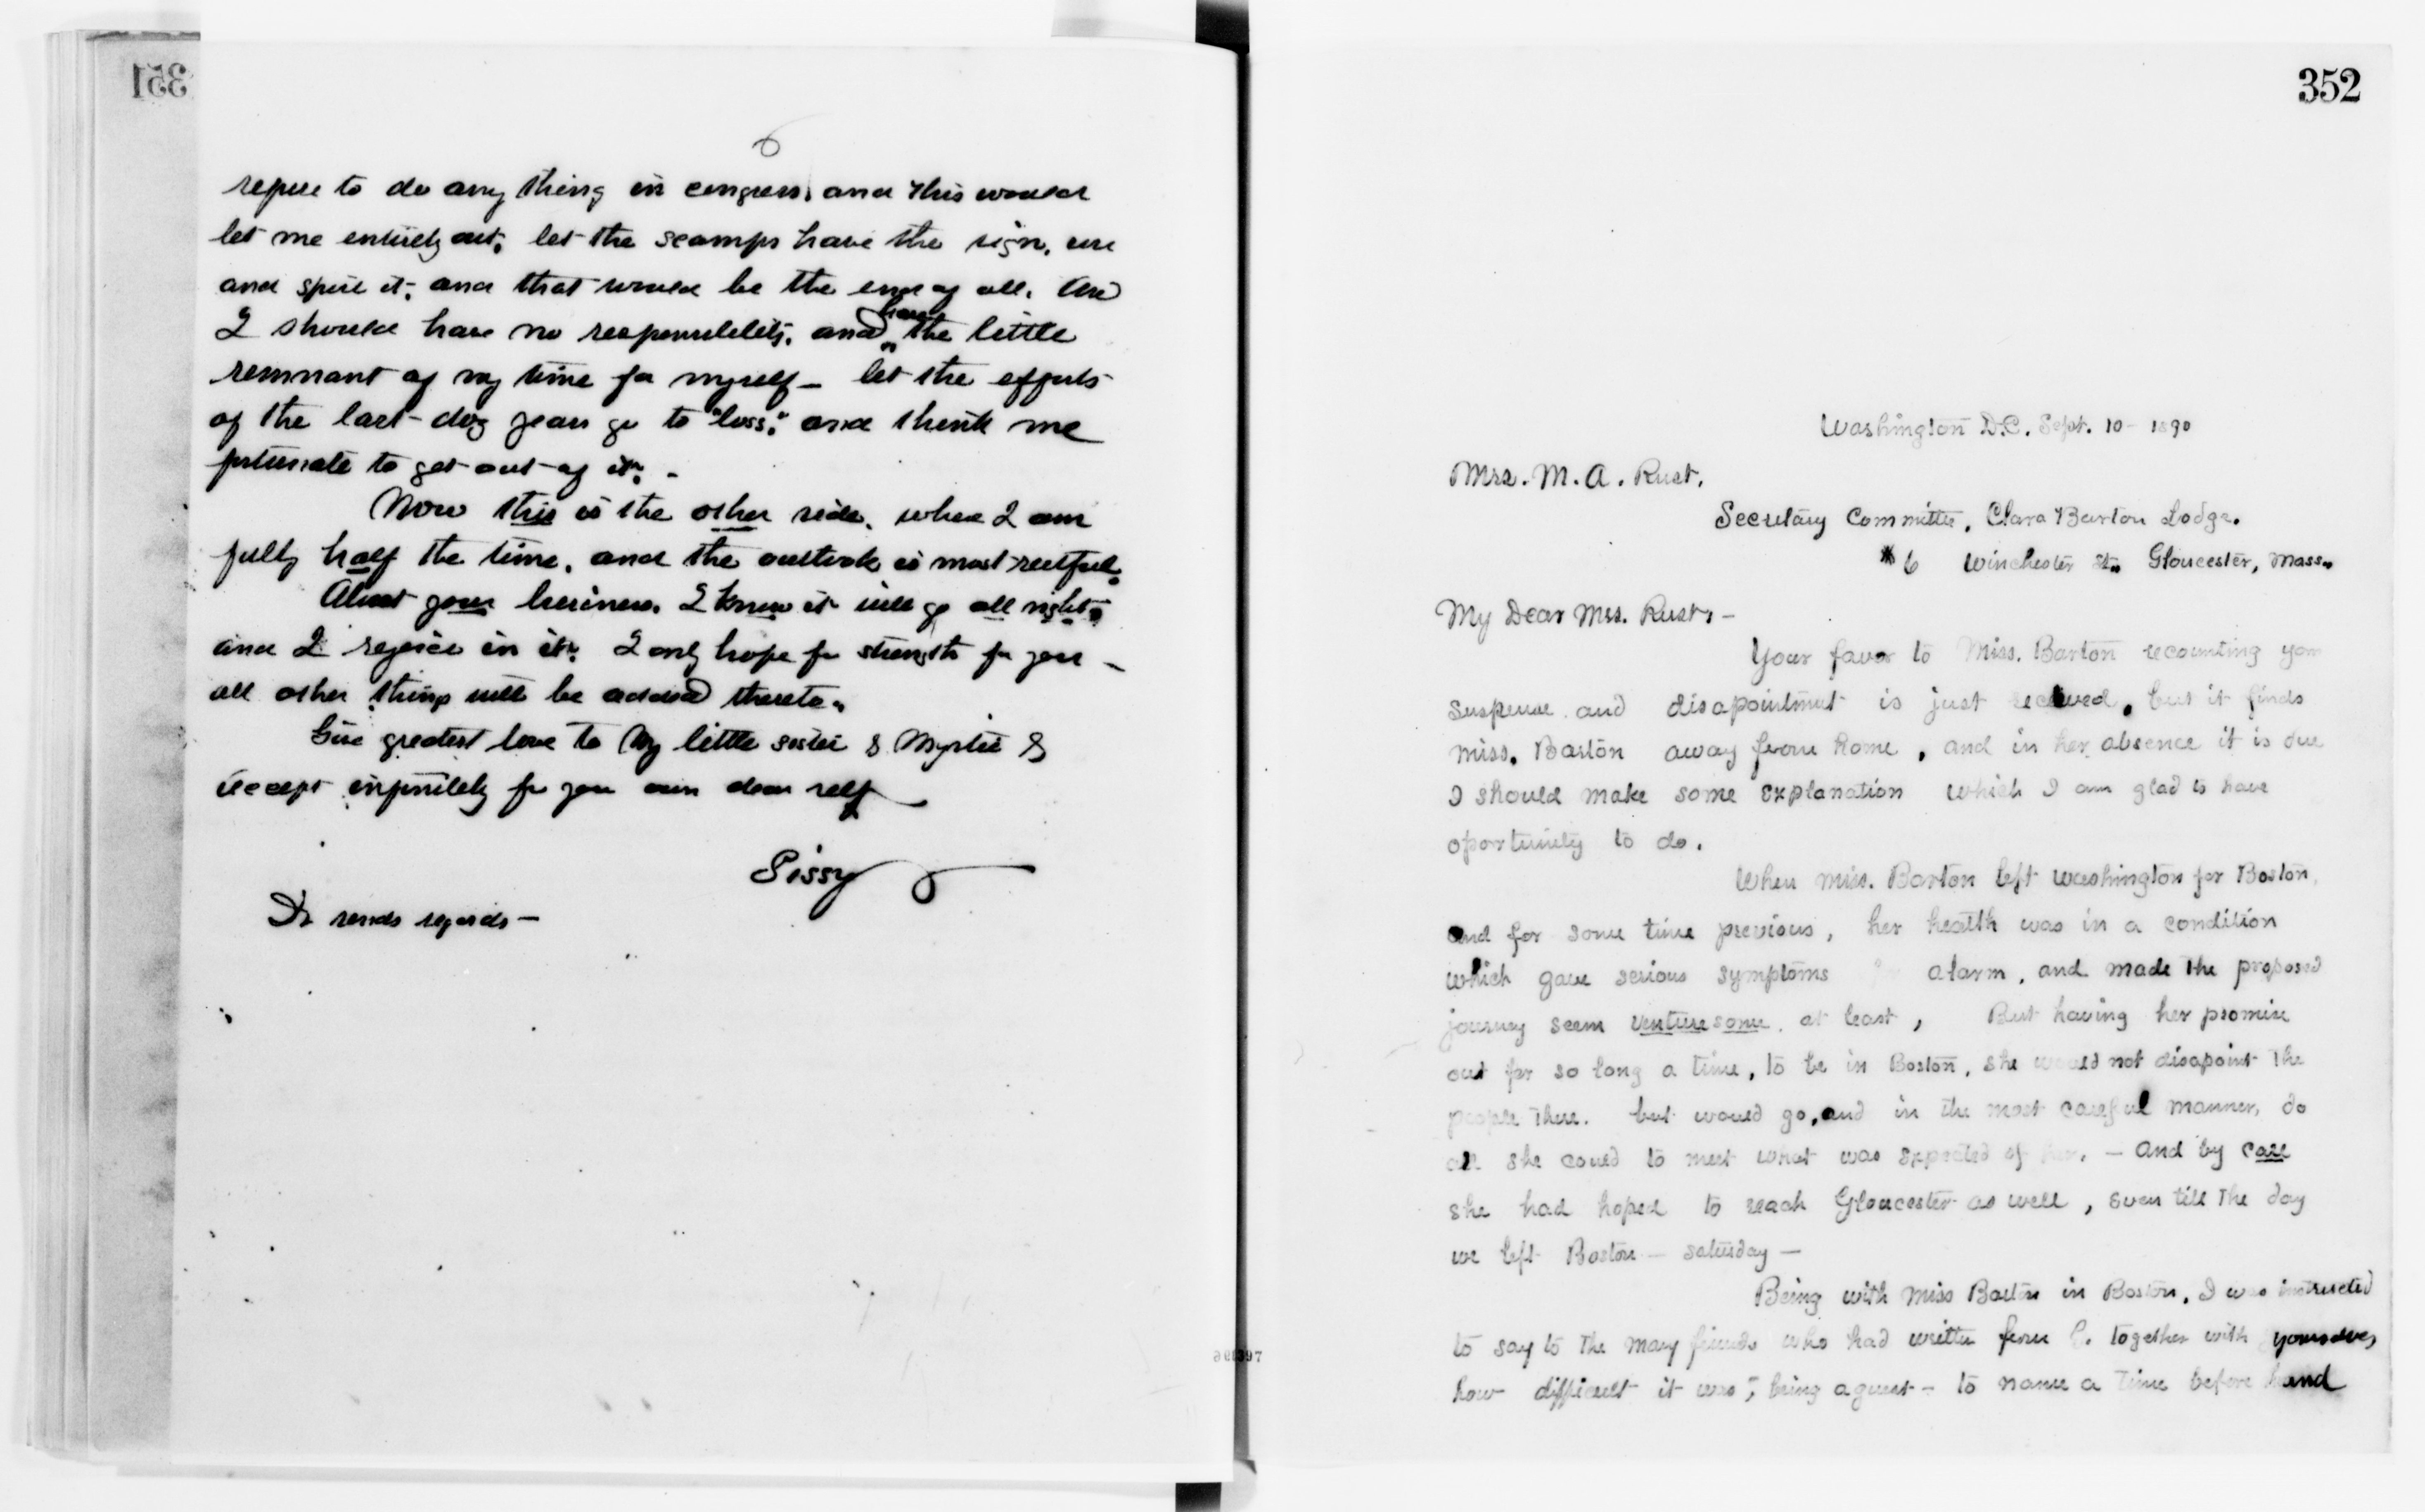 351
6
refuse to do any thing in congress, and this would
let me entirely out, let the scamps have the sign, use
and spoil it, and that would be the end of all. And
I should have no responsibility, and have the little
remnant of my time for myself – let the efforts
of the last dog years go to "loss," and think me
fortunate to get out of it. –
Now this is the other side, where I am
fully half the time, and the outlook is most restful.
About your business, I know it will go all right,
and I rejoice in it. I only hope for strength for you –
all other things will be added thereto.
Give greatest love to My little sister & Myrtie &
accept infinitely for your own dear self
Sissy
Dr sends regards –
352
Washington D.C. Sept. 10 – 1890
Mrs. M. A. Rust.
Secretary Committee, Clara Barton Lodge.
# 6 Winchester St. Gloucester, Mass.
My Dear Mrs. Rust, –
Your favor to Miss. Barton recounting your
suspense and disapointment is just received, but it finds
Miss. Barton away from home, and in her absence it is due
I should make some explanation which I am glad to have
oportunity to do.
When Miss. Barton left Washington for Boston,
and for some time previous, her health was in a condition
which gave serious symptoms alarm, and made the proposed
journey seem venturesome at least, But having her promise
out for so long a time, to be in Boston, she would not disapoint the
people there. but would go, and in the most careful manner, do
all she could to meet what was expected of her. – and by care
she had hoped to reach Gloucester as well, even till the day
we left Boston – Saturday –
Being with Miss Barton in Boston, I was instructed
to say to the many friends who had written from together with yourselves,
how difficult it was, being a guest – to name a time before hand